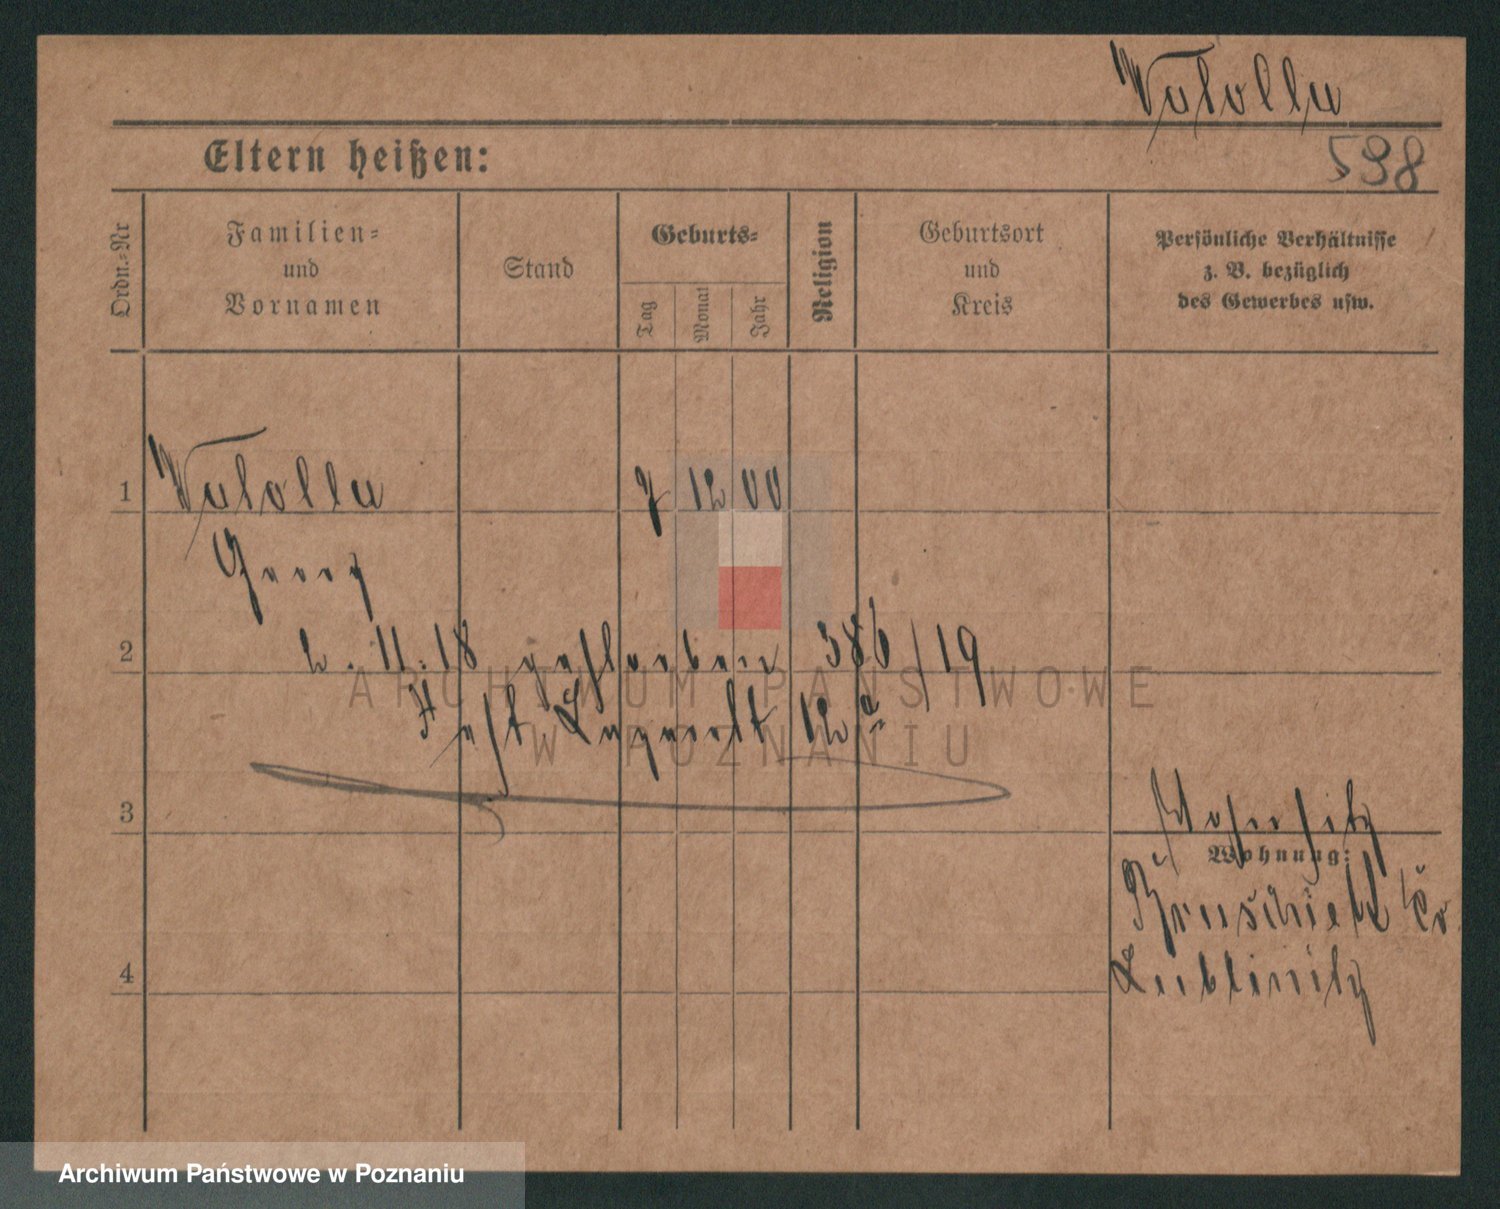 Watolla
598
Eltern heißen:
Ordn.-Nr
Familien-
und
Vornamen
Stand
Geburts-
Tag
Monat
Jahr
Religion
Geburtsort
und
Kreis
Persönliche Verhältnisse
z. B. bezüglich
des Gewerbes usw.
1 Watolla 7 12 00
Georg
2 2. 11. 18 gestorben 386/19
Fest. Lazarett 12
3
Wohnung:
4 Lublinitz
ARCHIWUM PAŃSTWOWE
W POZNANIU
Archiwum Państwowe w Poznaniu